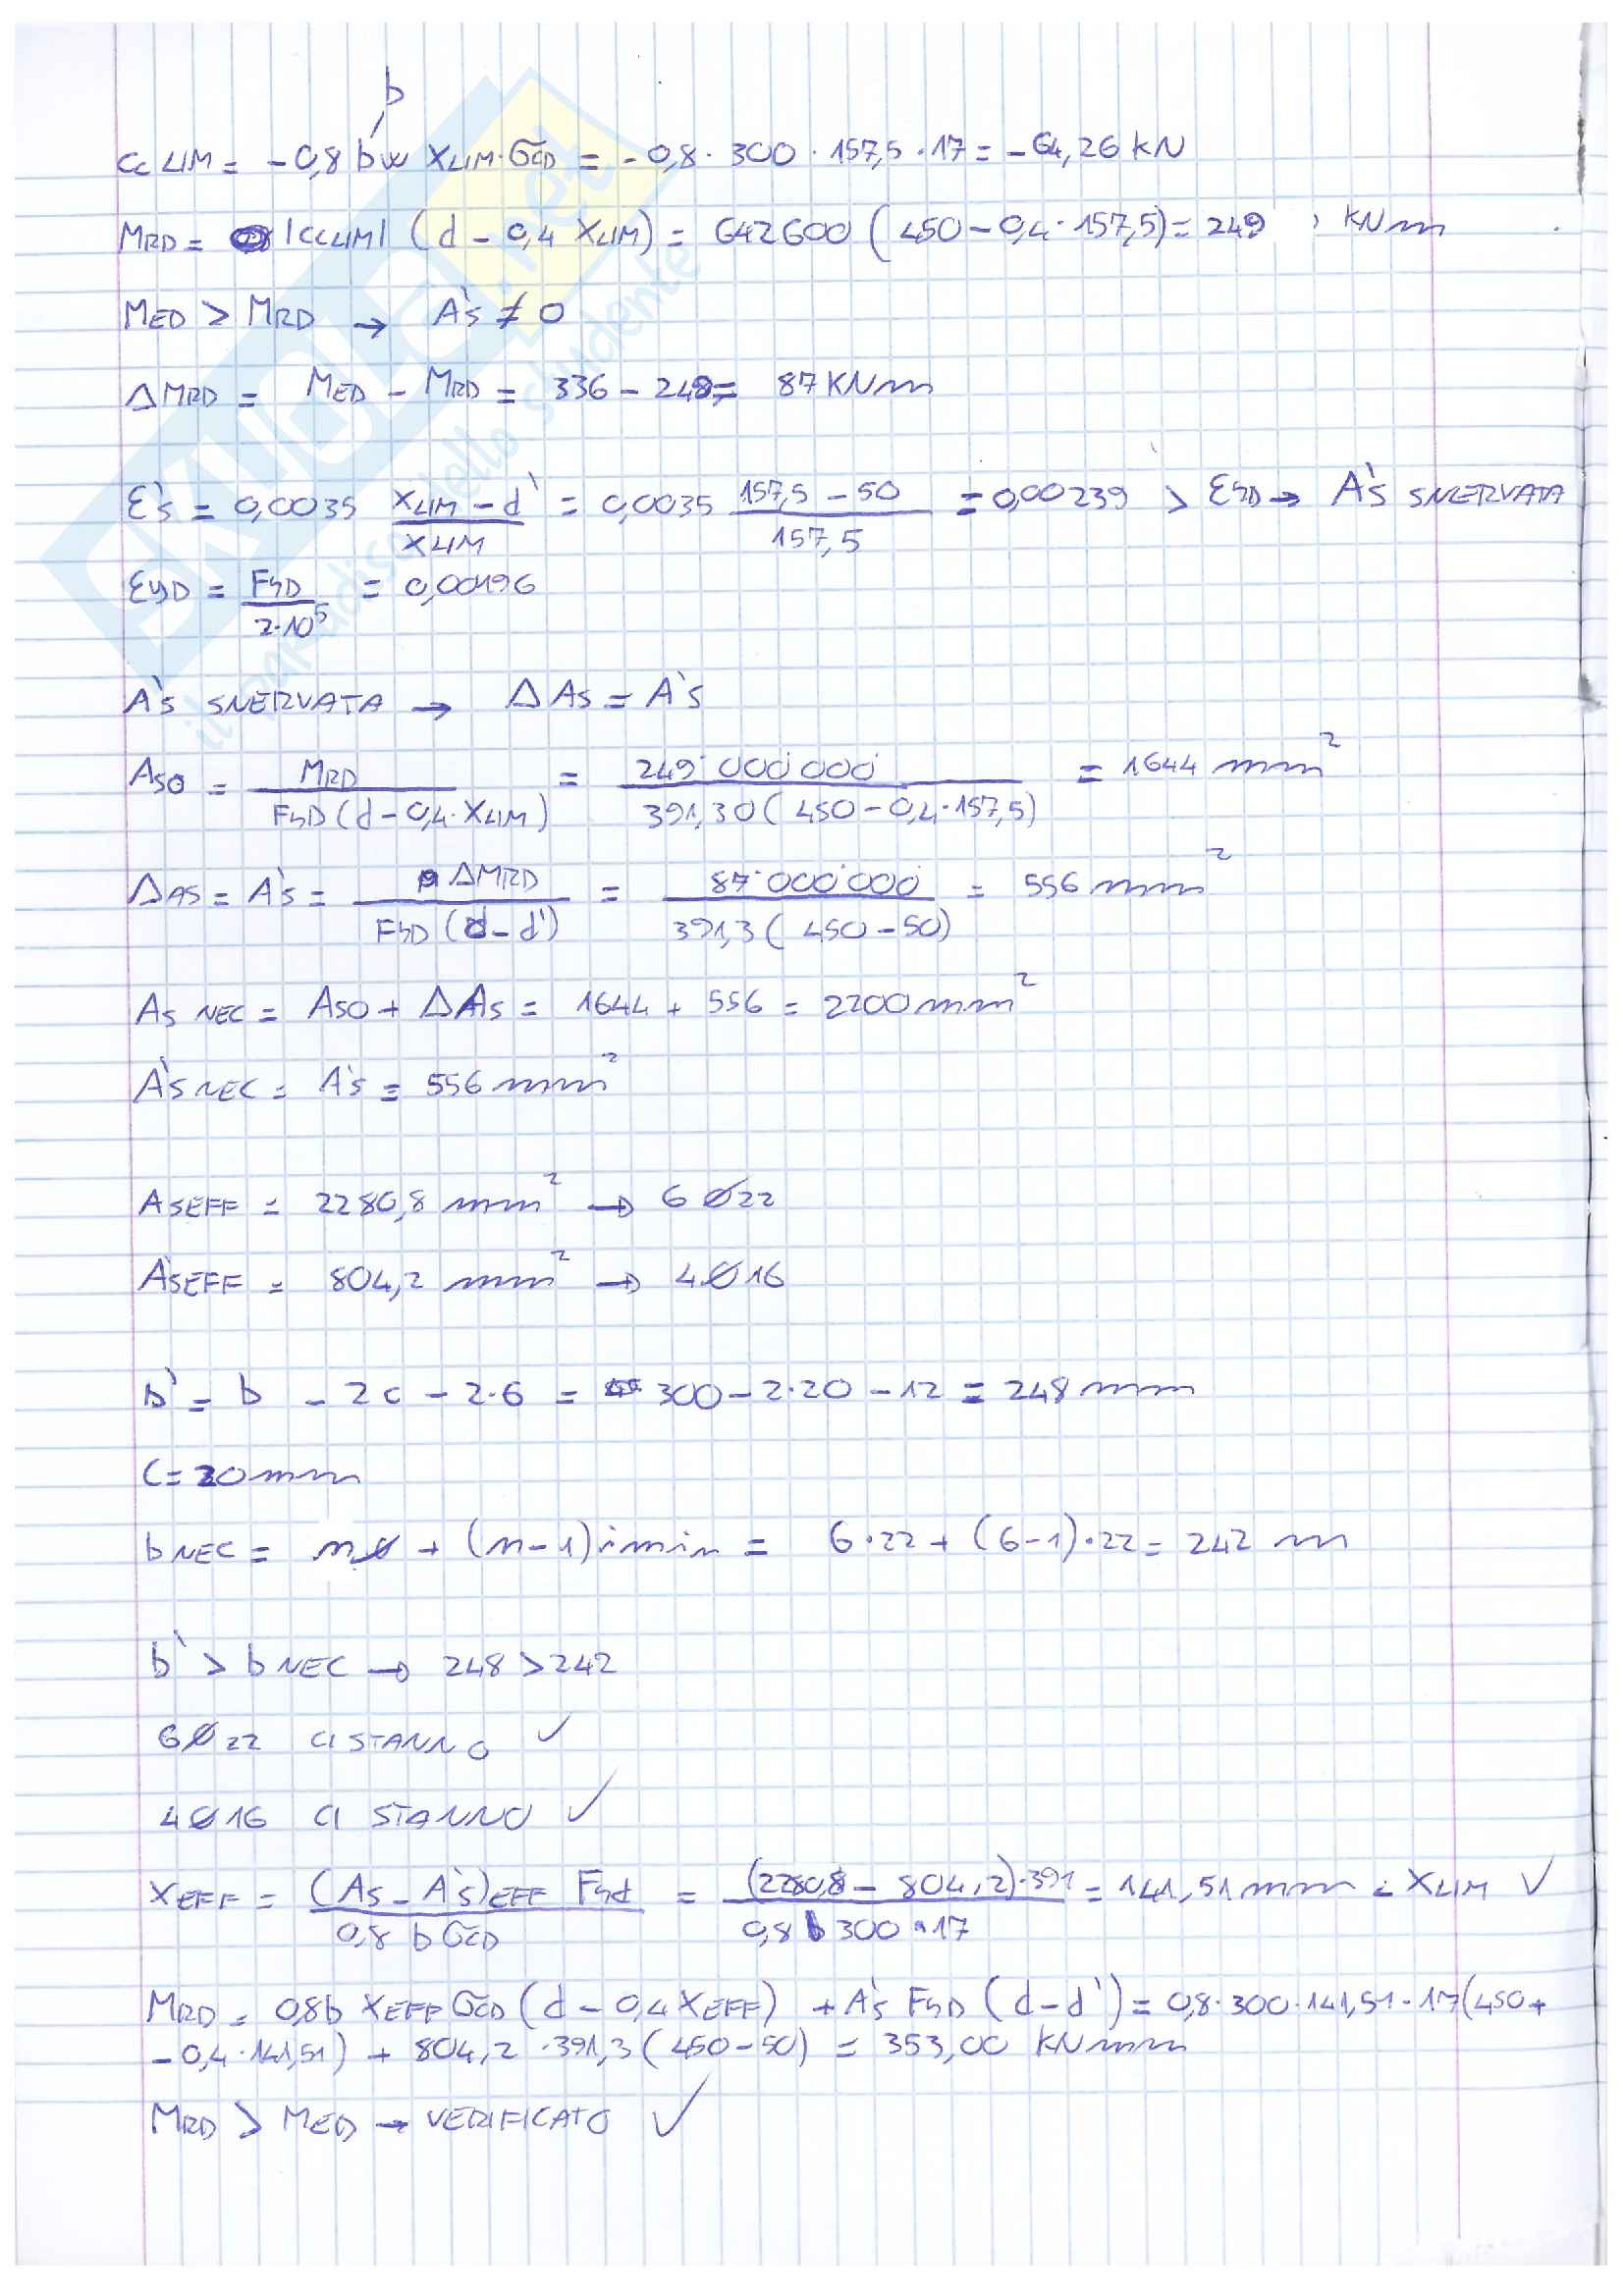 b
CC LIM = -0,8 bw XLIM·σCD = -0,8·300·157,5·17 = -64,26 kN
MRD = |CCLIM| (d - 0,4 XLIM) = 642600 (450-0,4·157,5) = 249 kNm
MED > MRD → A's ≠ 0
ΔMRD = MED - MRD = 336 - 249 = 87 KNm
ε's = 0,0035 (XLIM - d')/XLIM = 0,0035 (157,5 - 50)/157,5 = 0,00239 > εYD → A's SNERVATA
εYD = FYD/2·10⁵ = 0,00196
A's SNERVATA → ΔAs = A's
ASO = MRD/FYD(d-0,4·XLIM) = 249·000 000/391,30(450-0,4·157,5) = 1644 mm²
ΔAS = A's = ΔMRD/FYD(d-d') = 87·000·000/391,3(450-50) = 556 mm²
AS NEC = ASO + ΔAS = 1644 + 556 = 2200 mm²
A's NEC = A's = 556 mm²
ASEFF = 2280,8 mm² → 6Ø22
A'SEFF = 804,2 mm² → 4Ø16
b' = b - 2c - 2·6 = 300-2·20-12 = 248 mm
C = 20 mm
bNEC = nØ + (n-1) imin = 6·22 + (6-1)·22 = 242 m
b' > bNEC → 248 > 242
6Ø22 CI STANNO ✓
4Ø16 CI STANNO ✓
XEFF = (As - A's)EFF Fyd/0,8 b σCD = (2280,8 - 804,2)·391/0,8 300·17 = 141,51 mm < XLIM ✓
MRD = 0,8b XEFF σCD (d - 0,4 XEFF) + A's FYD (d-d') = 0,8·300·141,51·17(450+
-0,4·141,51) + 804,2·391,3(450-50) = 353,00 KNmm
MRD > MED → VERIFICATO ✓
SKUOLA.net
il paradiso dello studente